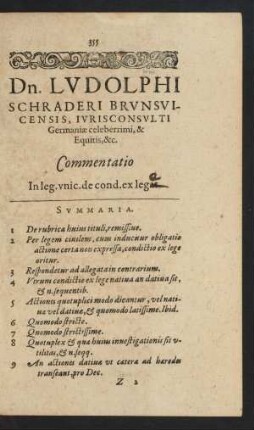 353
Dn. LVDOLPHI
SCHRADERI BRVNSVI-
CENSIS, IVRISCONSVLTI
Germaniæ celeberrimi, &
Equitis, &c.
Commentatio
In leg. vnic. de cond. ex lege
SVMMARIA.
1 De rubrica huius tituli, remissiue.
2 Per legem ciuilem, cum inducitur obligatio
actione certa non expressa, condictio ex lege
oritur.
3 Respondetur ad allegata in contrarium.
4 Vtrum condictio ex lege natiua an datiua sit,
& n. sequentib.
5 Actionis quotuplici modo dicantur, vel natiuæ
vel datiuæ, & quomodo latissime. Ibid.
6 Quomodo strictè.
7 Quomodo strictissime.
8 Quotuplex & quæ huius inuestigationis sit v-
tilitas, & n. seqq.
9 An actionis datiuæ vt cæteræ ad hæredes
transeant, pro Dec.
Z 2